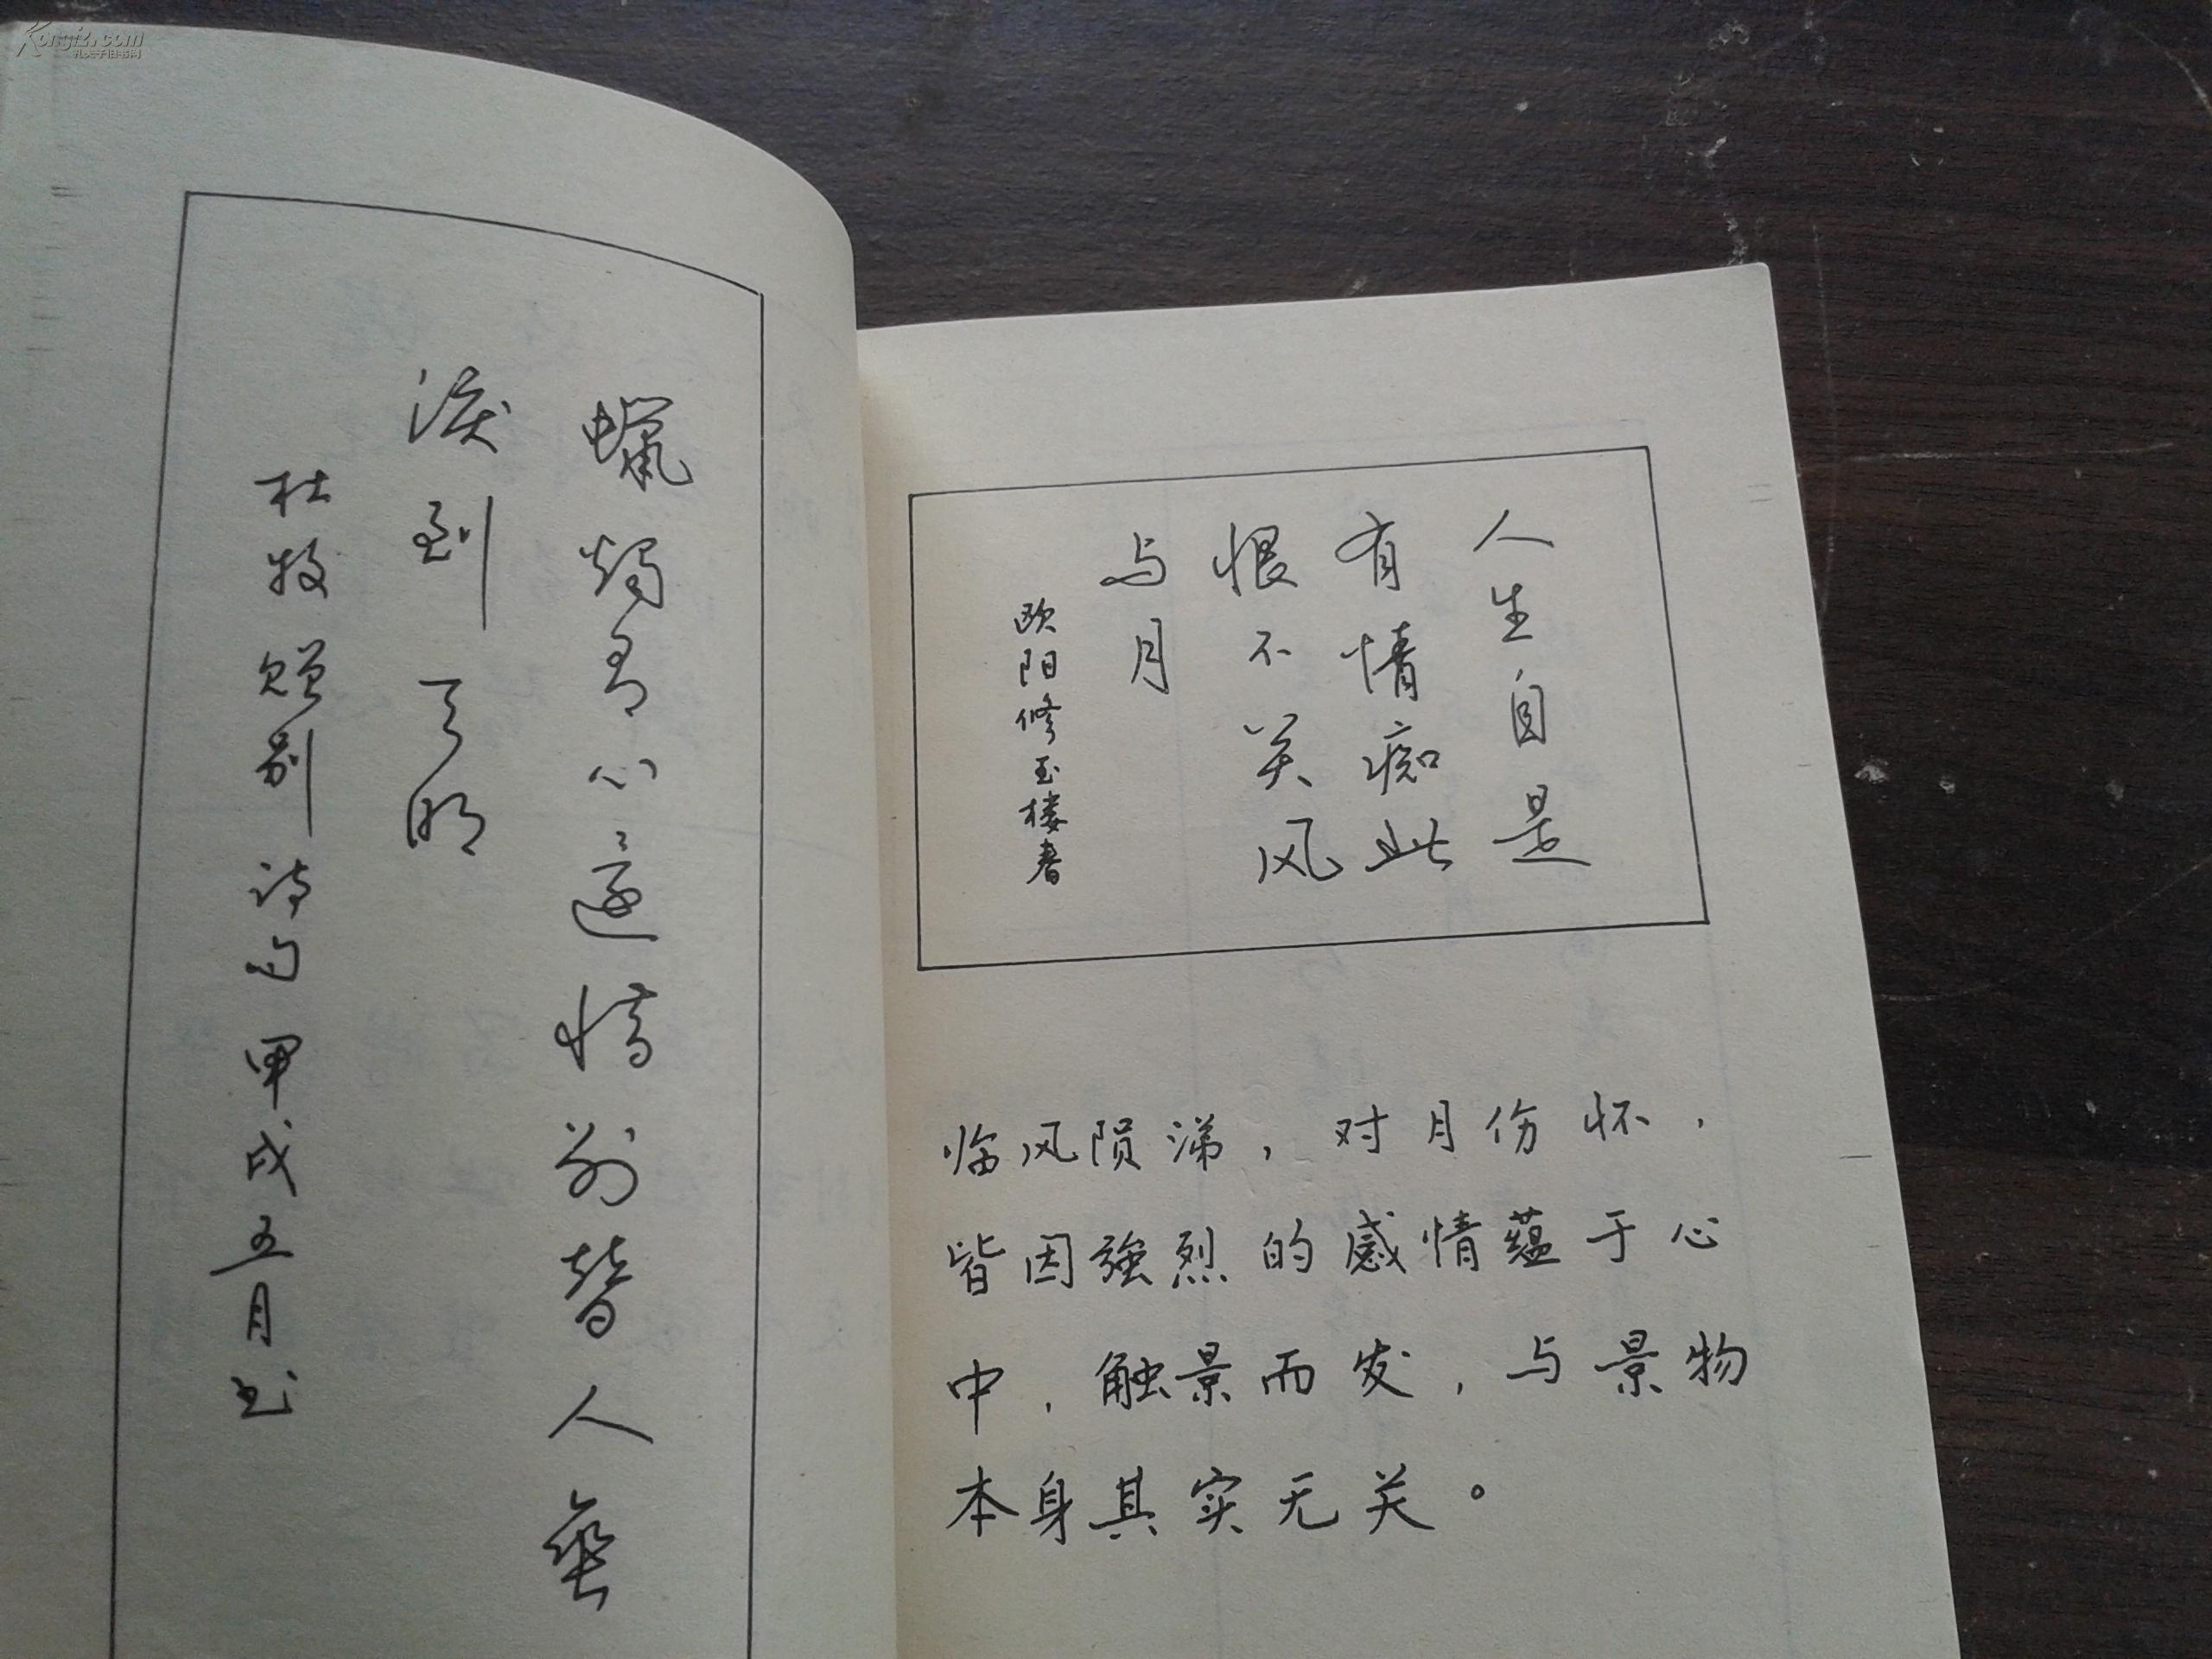 Kongfz.com
孔夫子旧书网
蜡烛有心还惜别替人垂
泪到天明
杜牧赠别诗句 甲戌五月书
人生自是
有情痴此
恨不关风
与月
欧阳修玉楼春
临风陨涕，对月伤怀，
皆因強烈的感情蕴于心
中，触景而发，与景物
本身其实无关。